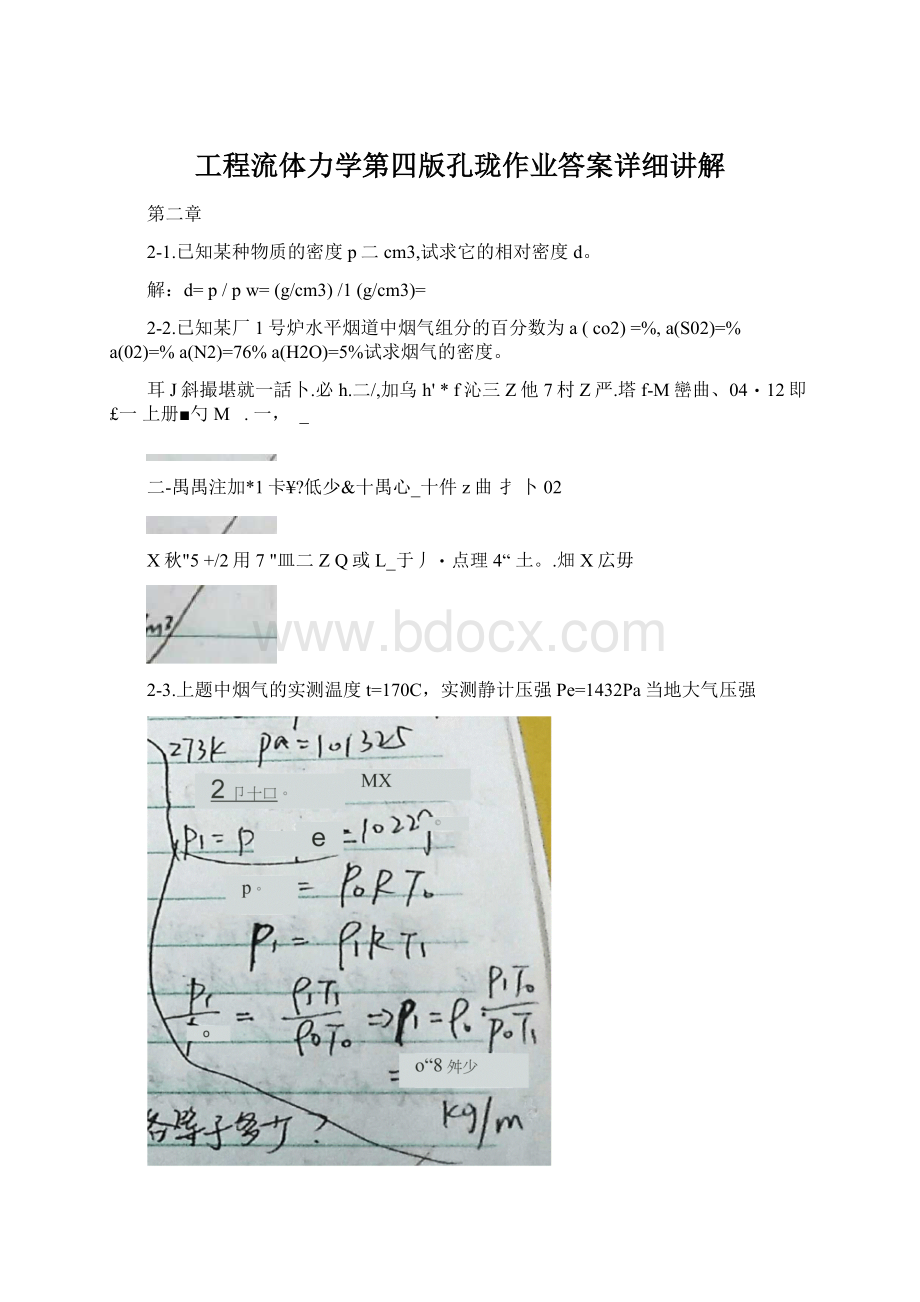 工程流体力学第四版孔珑作业答案详细讲解
第二章
2-1.已知某种物质的密度p二cm3,试求它的相对密度d。
解：d= p / p w= (g/cm3) /1 (g/cm3)=
2-2.已知某厂1号炉水平烟道中烟气组分的百分数为a ( co2) =%, a(S02)=%
a(02)=% a(N2)=76% a(H2O)=5%试求烟气的密度。
耳J斜撮堪就一話卜.必h.二/,加乌h' * f沁三Z他7村Z严.塔f-M巒曲、04・12即
£一 上册■勺M .一， _
二-禺禺注加*1卡¥?低少&十禺心_十件z曲 扌 卜02
X秋"5 +/2用7 "皿二ZQ或L_于丿・点理4“土。.畑X広毋
m3
www.bdocx.com
2-3.上题中烟气的实测温度t=170C，实测静计压强Pe=1432Pa当地大气压强
273K pa=101325
2卩十口。 MX
P1=P e =1022 。
p。 = P0RT0
P1= ρ1RT1
P1 = ρ1T1/ρ0T0 => ρ1=ρ0·P1T0/P0T1
。
= o“8舛少
各等于多少? kg/m